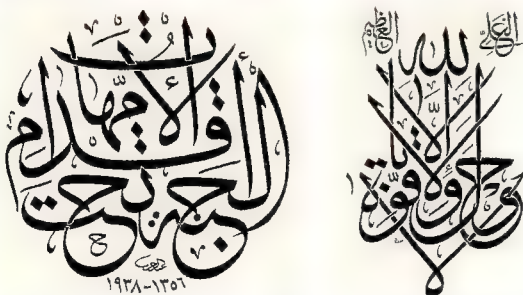 الجنة تحت أقدام الأمهات
١٣٥٦-١٩٣٨
لا حول ولا قوة إلا بالله
العلي العظيم